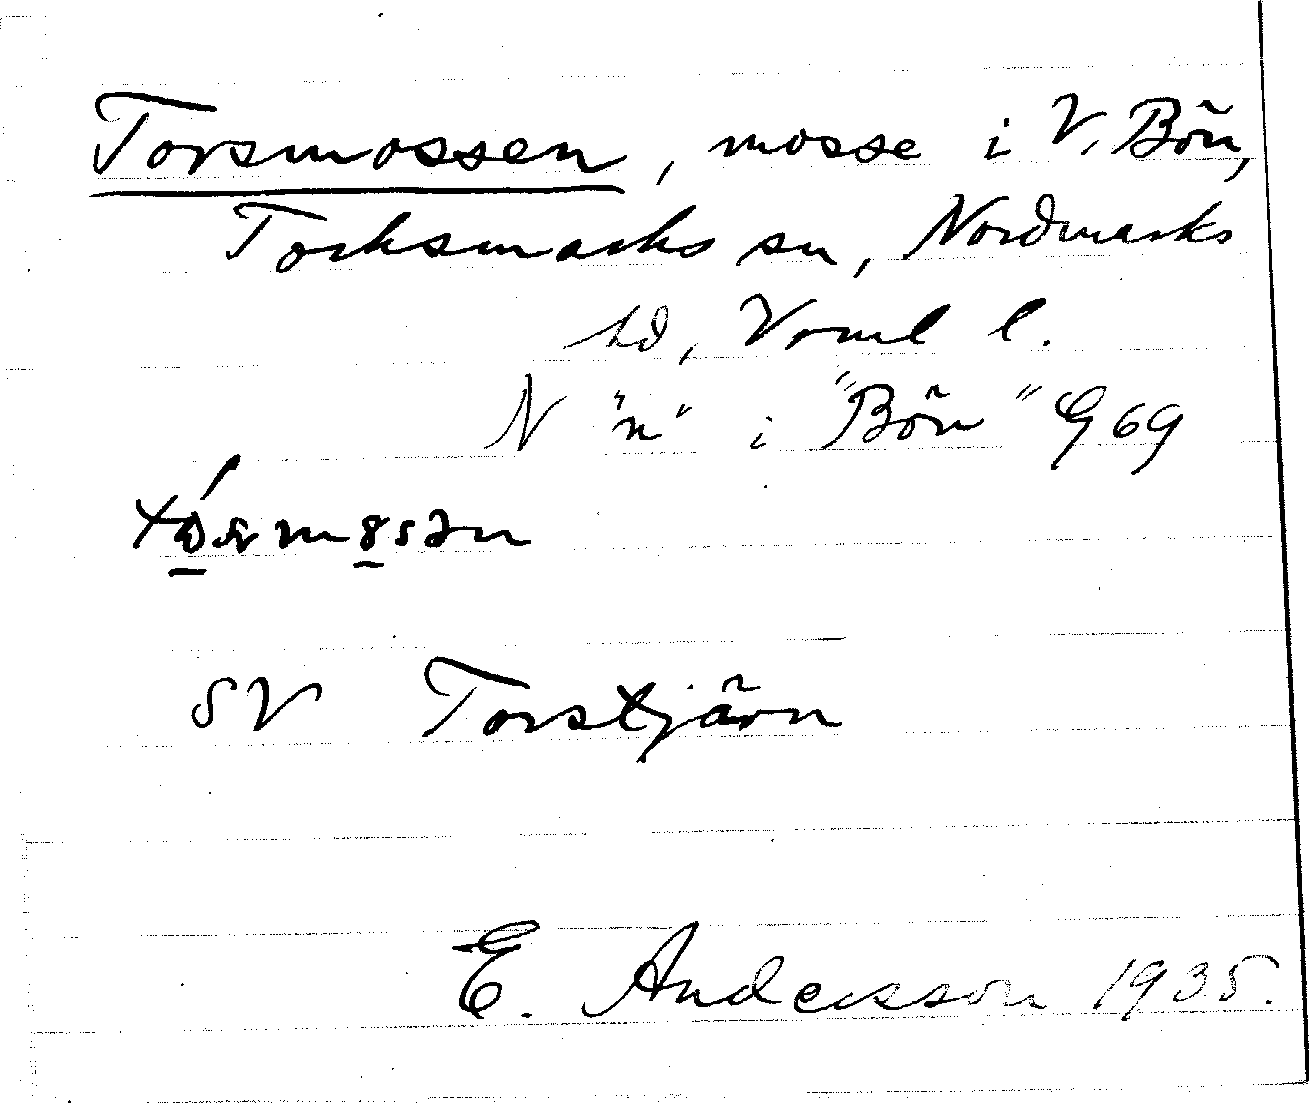 Torsmossen, mosse i V. Bön,
Töcksmarks sn, Nordmarks
hd, Vrml l.
N "n" i "Bön" G 69
SV Torstjärn
E. Andersson 1935.